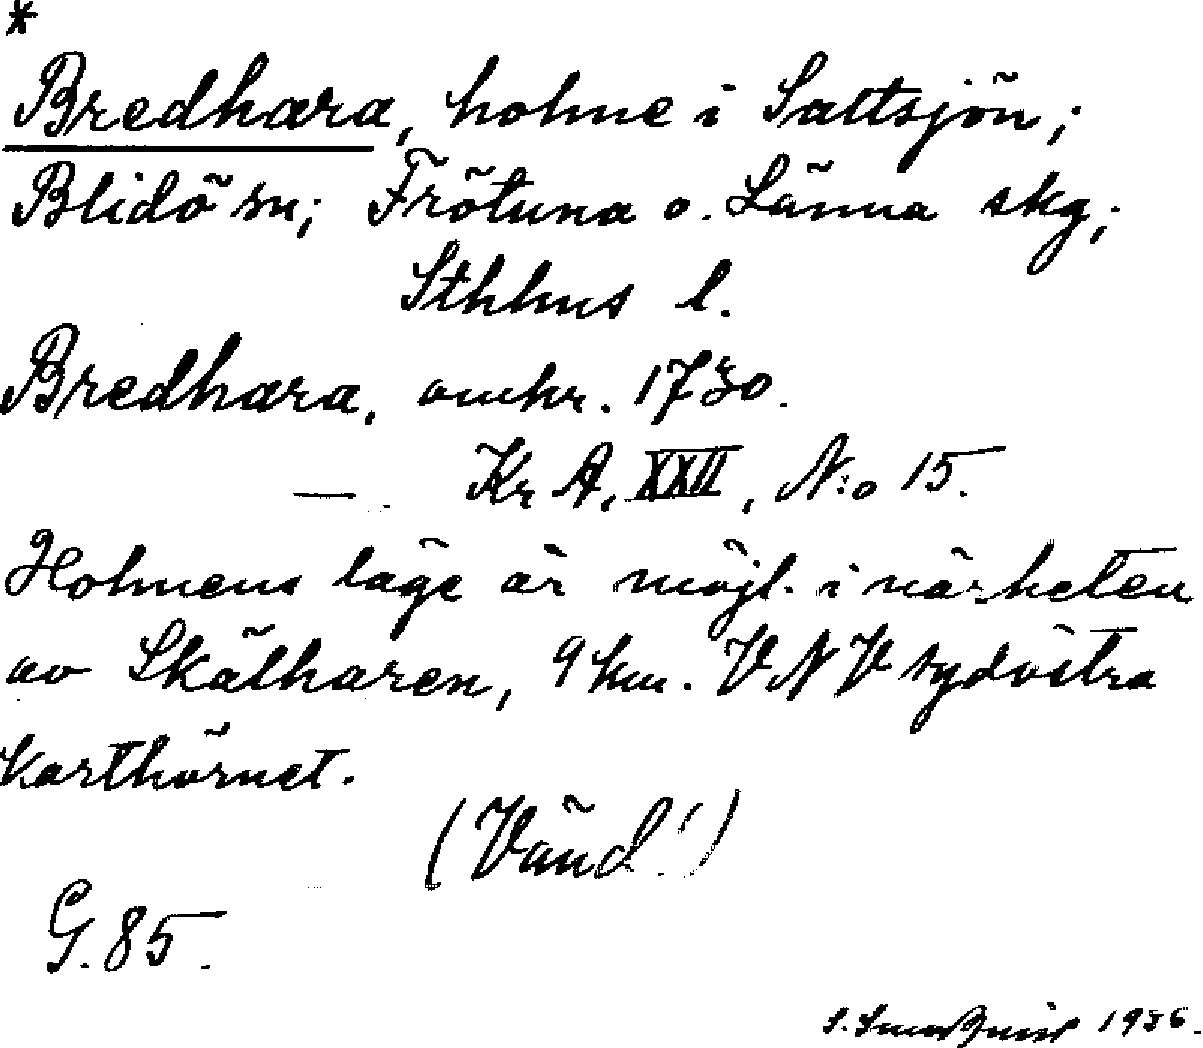 *
Bredhara, holme i Saltsjön;
Blidö sn; Frötuna o. Länna skg;
Sthlms l.
Bredhara, omkr. 1730.
—. Kr A, XXII, N:o 15.
Holmens läge är möjl. i närheten
av Skälharen, 9 km. VNV sydvästra
karthörnet.
(Vänd!)
G. 85.
S. 1936.